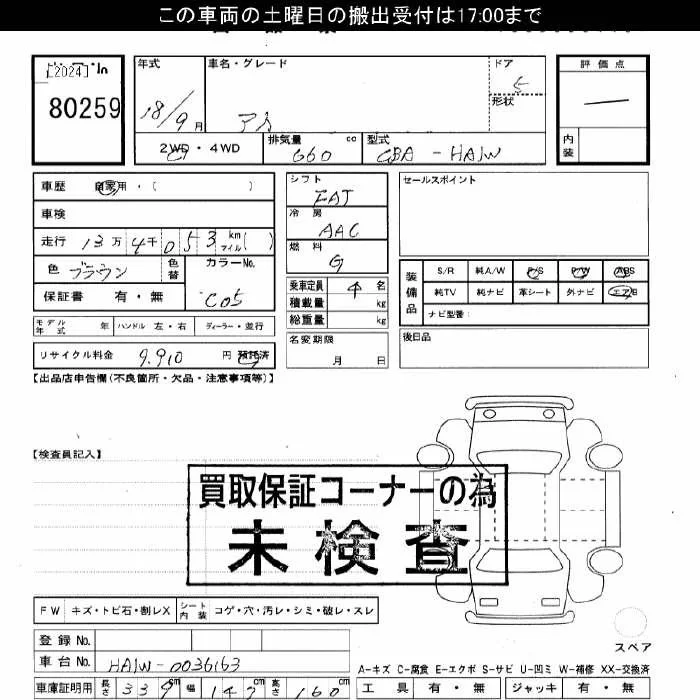 この車両の土曜日の搬出受付は17:00まで
[2024]
80259
年式
18/9 月
車名・グレード
アイ
ドア
5
形状
評価点
―
内装
2WD・4WD
排気量 660 cc
型式 CBA - HA1W
車歴 自家用・( )
車検
走行 13万 4千053 km マイル( )
色 ブラウン 色替
カラーNo. C05
保証書 有・無
シフト FAT
冷房 AAC
燃料 G
乗車定員 4 名
積載量 kg
総重量 kg
名変期限 月 日
セールスポイント
装備品
S/R 純A/W P/S P/W ABS
純TV 純ナビ 革シート 外ナビ エアB
ナビ型番:
後日品
モデル年式 年 ハンドル 左・右 ディーラー・並行
リサイクル料金 9.910 円 預託済
【出品店申告欄(不良箇所・欠品・注意事項等)】
【検査員記入】
買取保証コーナーの為
未検査
FW キズ・トビ石・割レX シート内装 コゲ・穴・汚レ・シミ・破レ・スレ
登録No.
車台No. HA1W-0036163
スペア
A-キズ C-腐食 E-エクボ S-サビ U-凹ミ W-補修 XX-交換済
車庫証明用 長さ 339 cm 幅 147 cm 高さ 160 cm
工具 有・無 ジャッキ 有・無